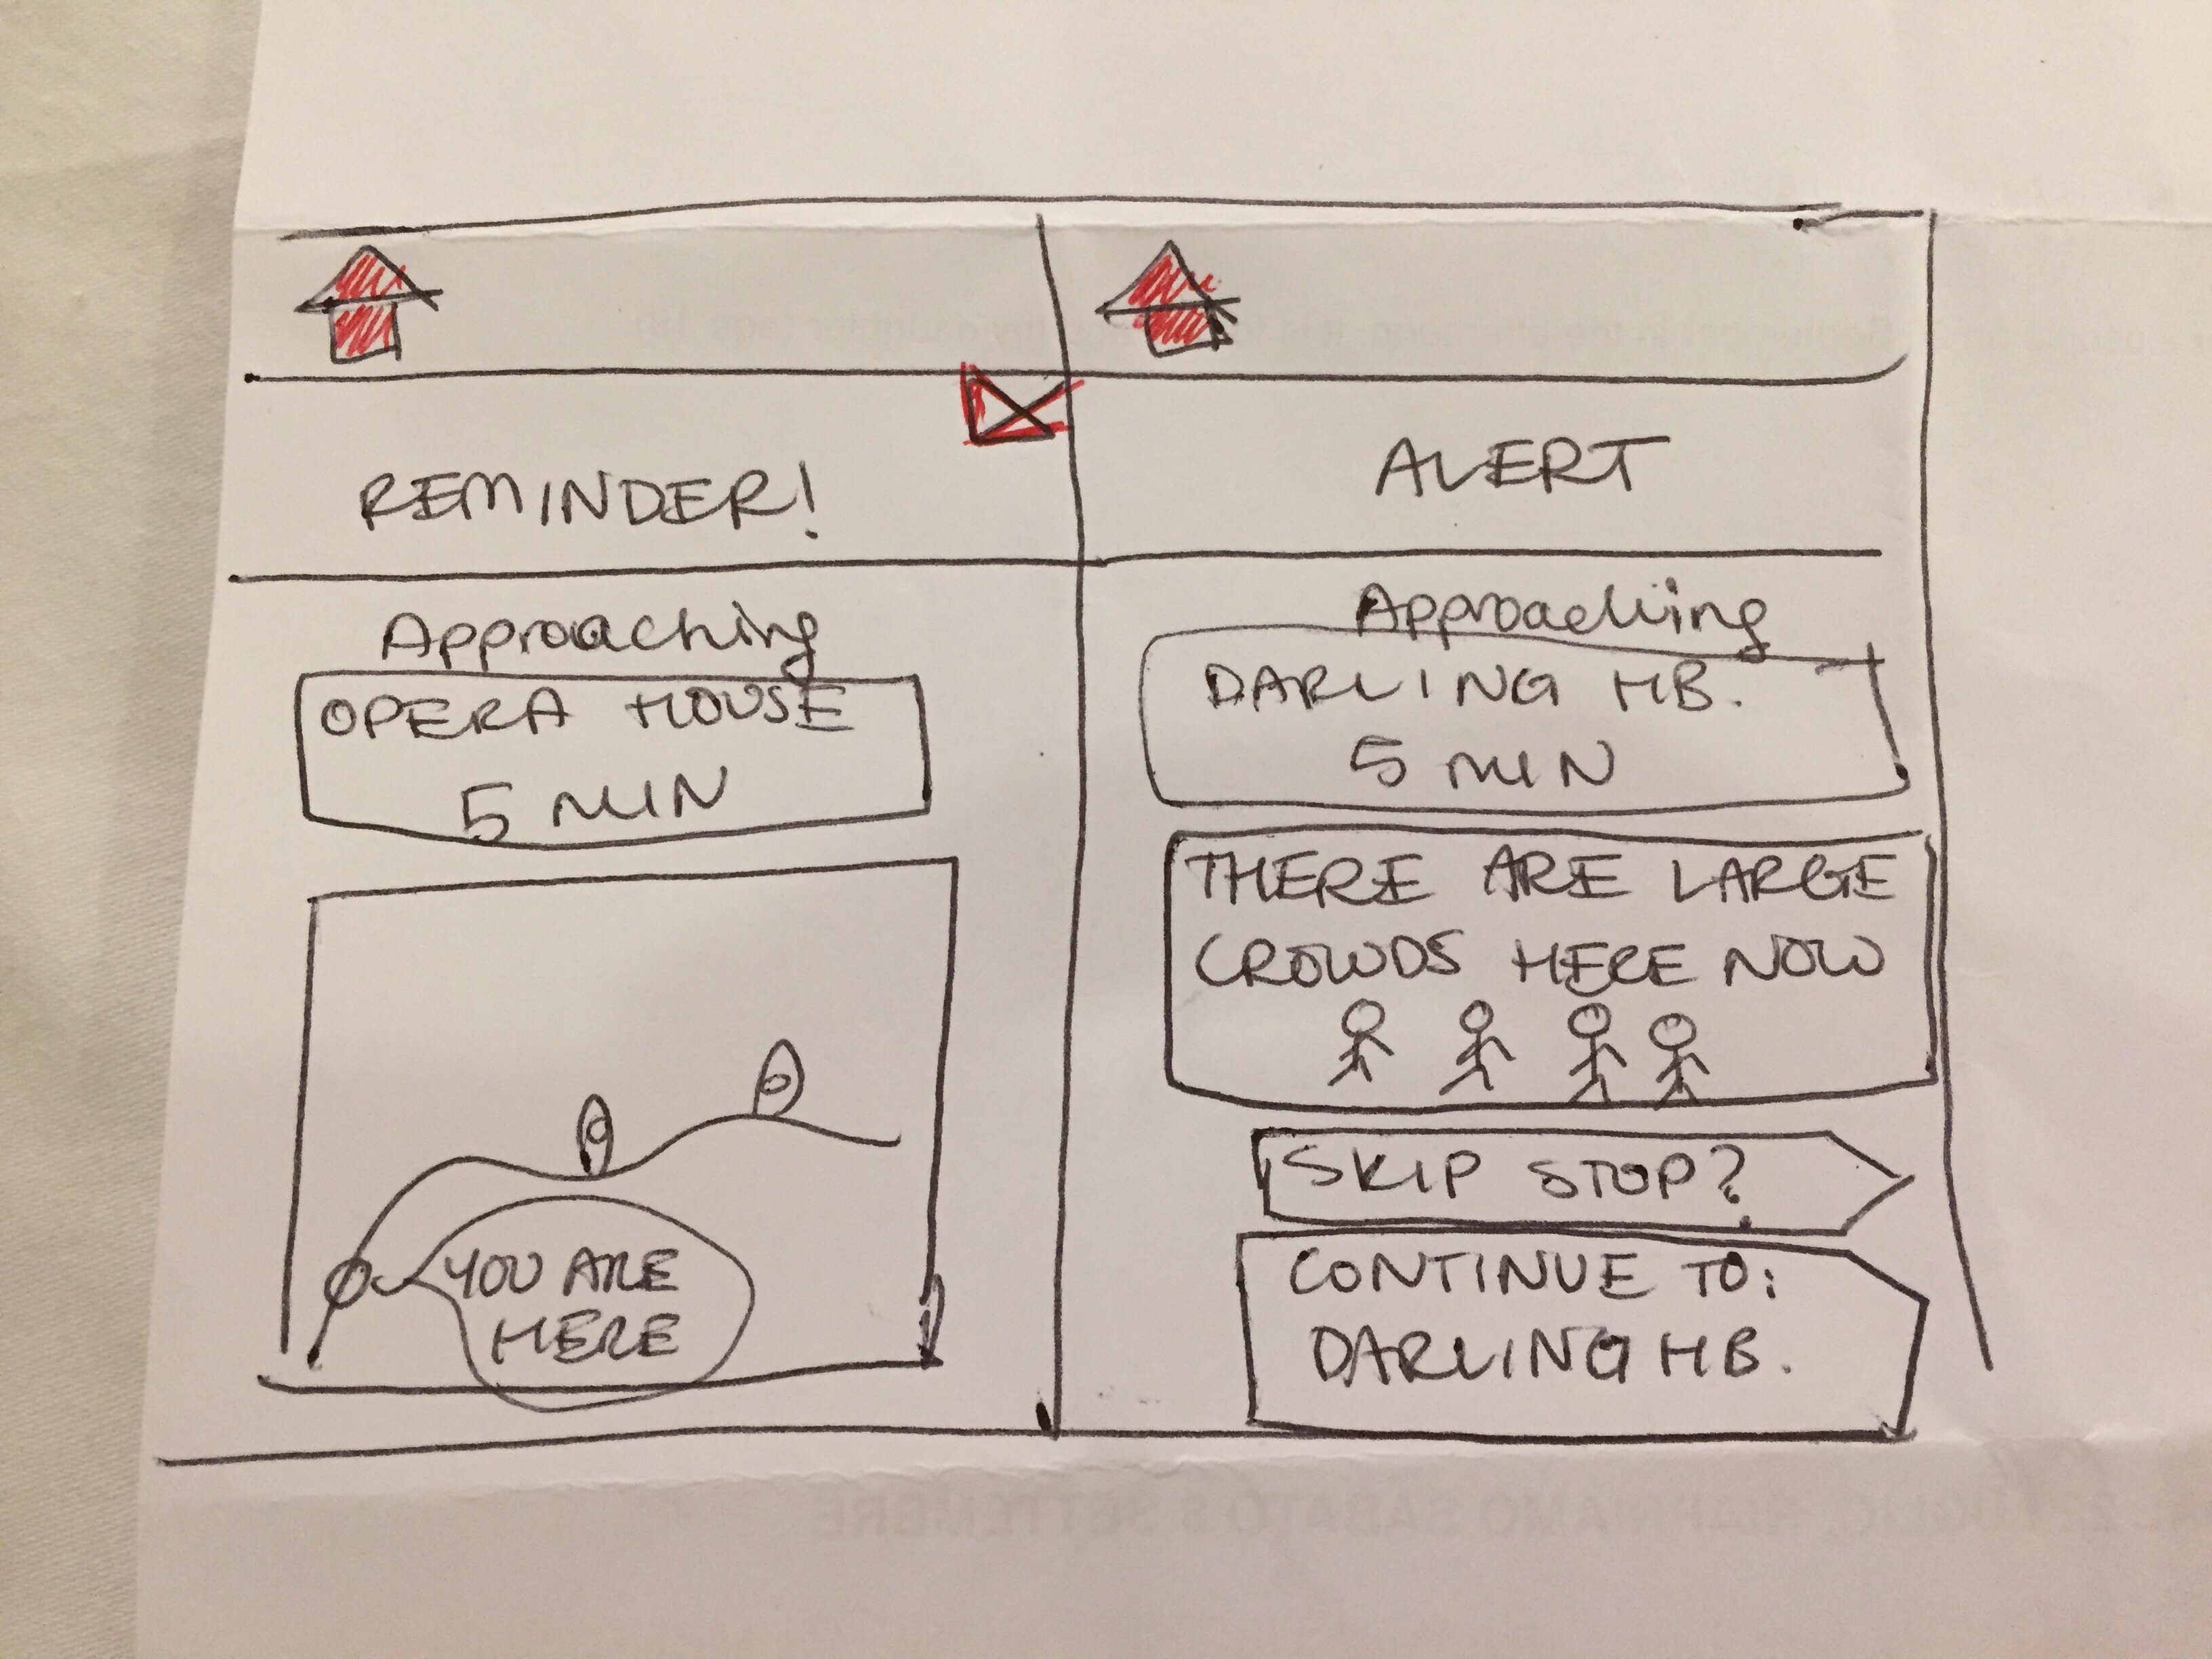 REMINDER!
Approaching
OPERA HOUSE
5 MIN
YOU ARE
HERE
ALERT
Approaching
DARLING HB.
5 MIN
THERE ARE LARGE
CROWDS HERE NOW
SKIP STOP?
CONTINUE TO:
DARLING HB.